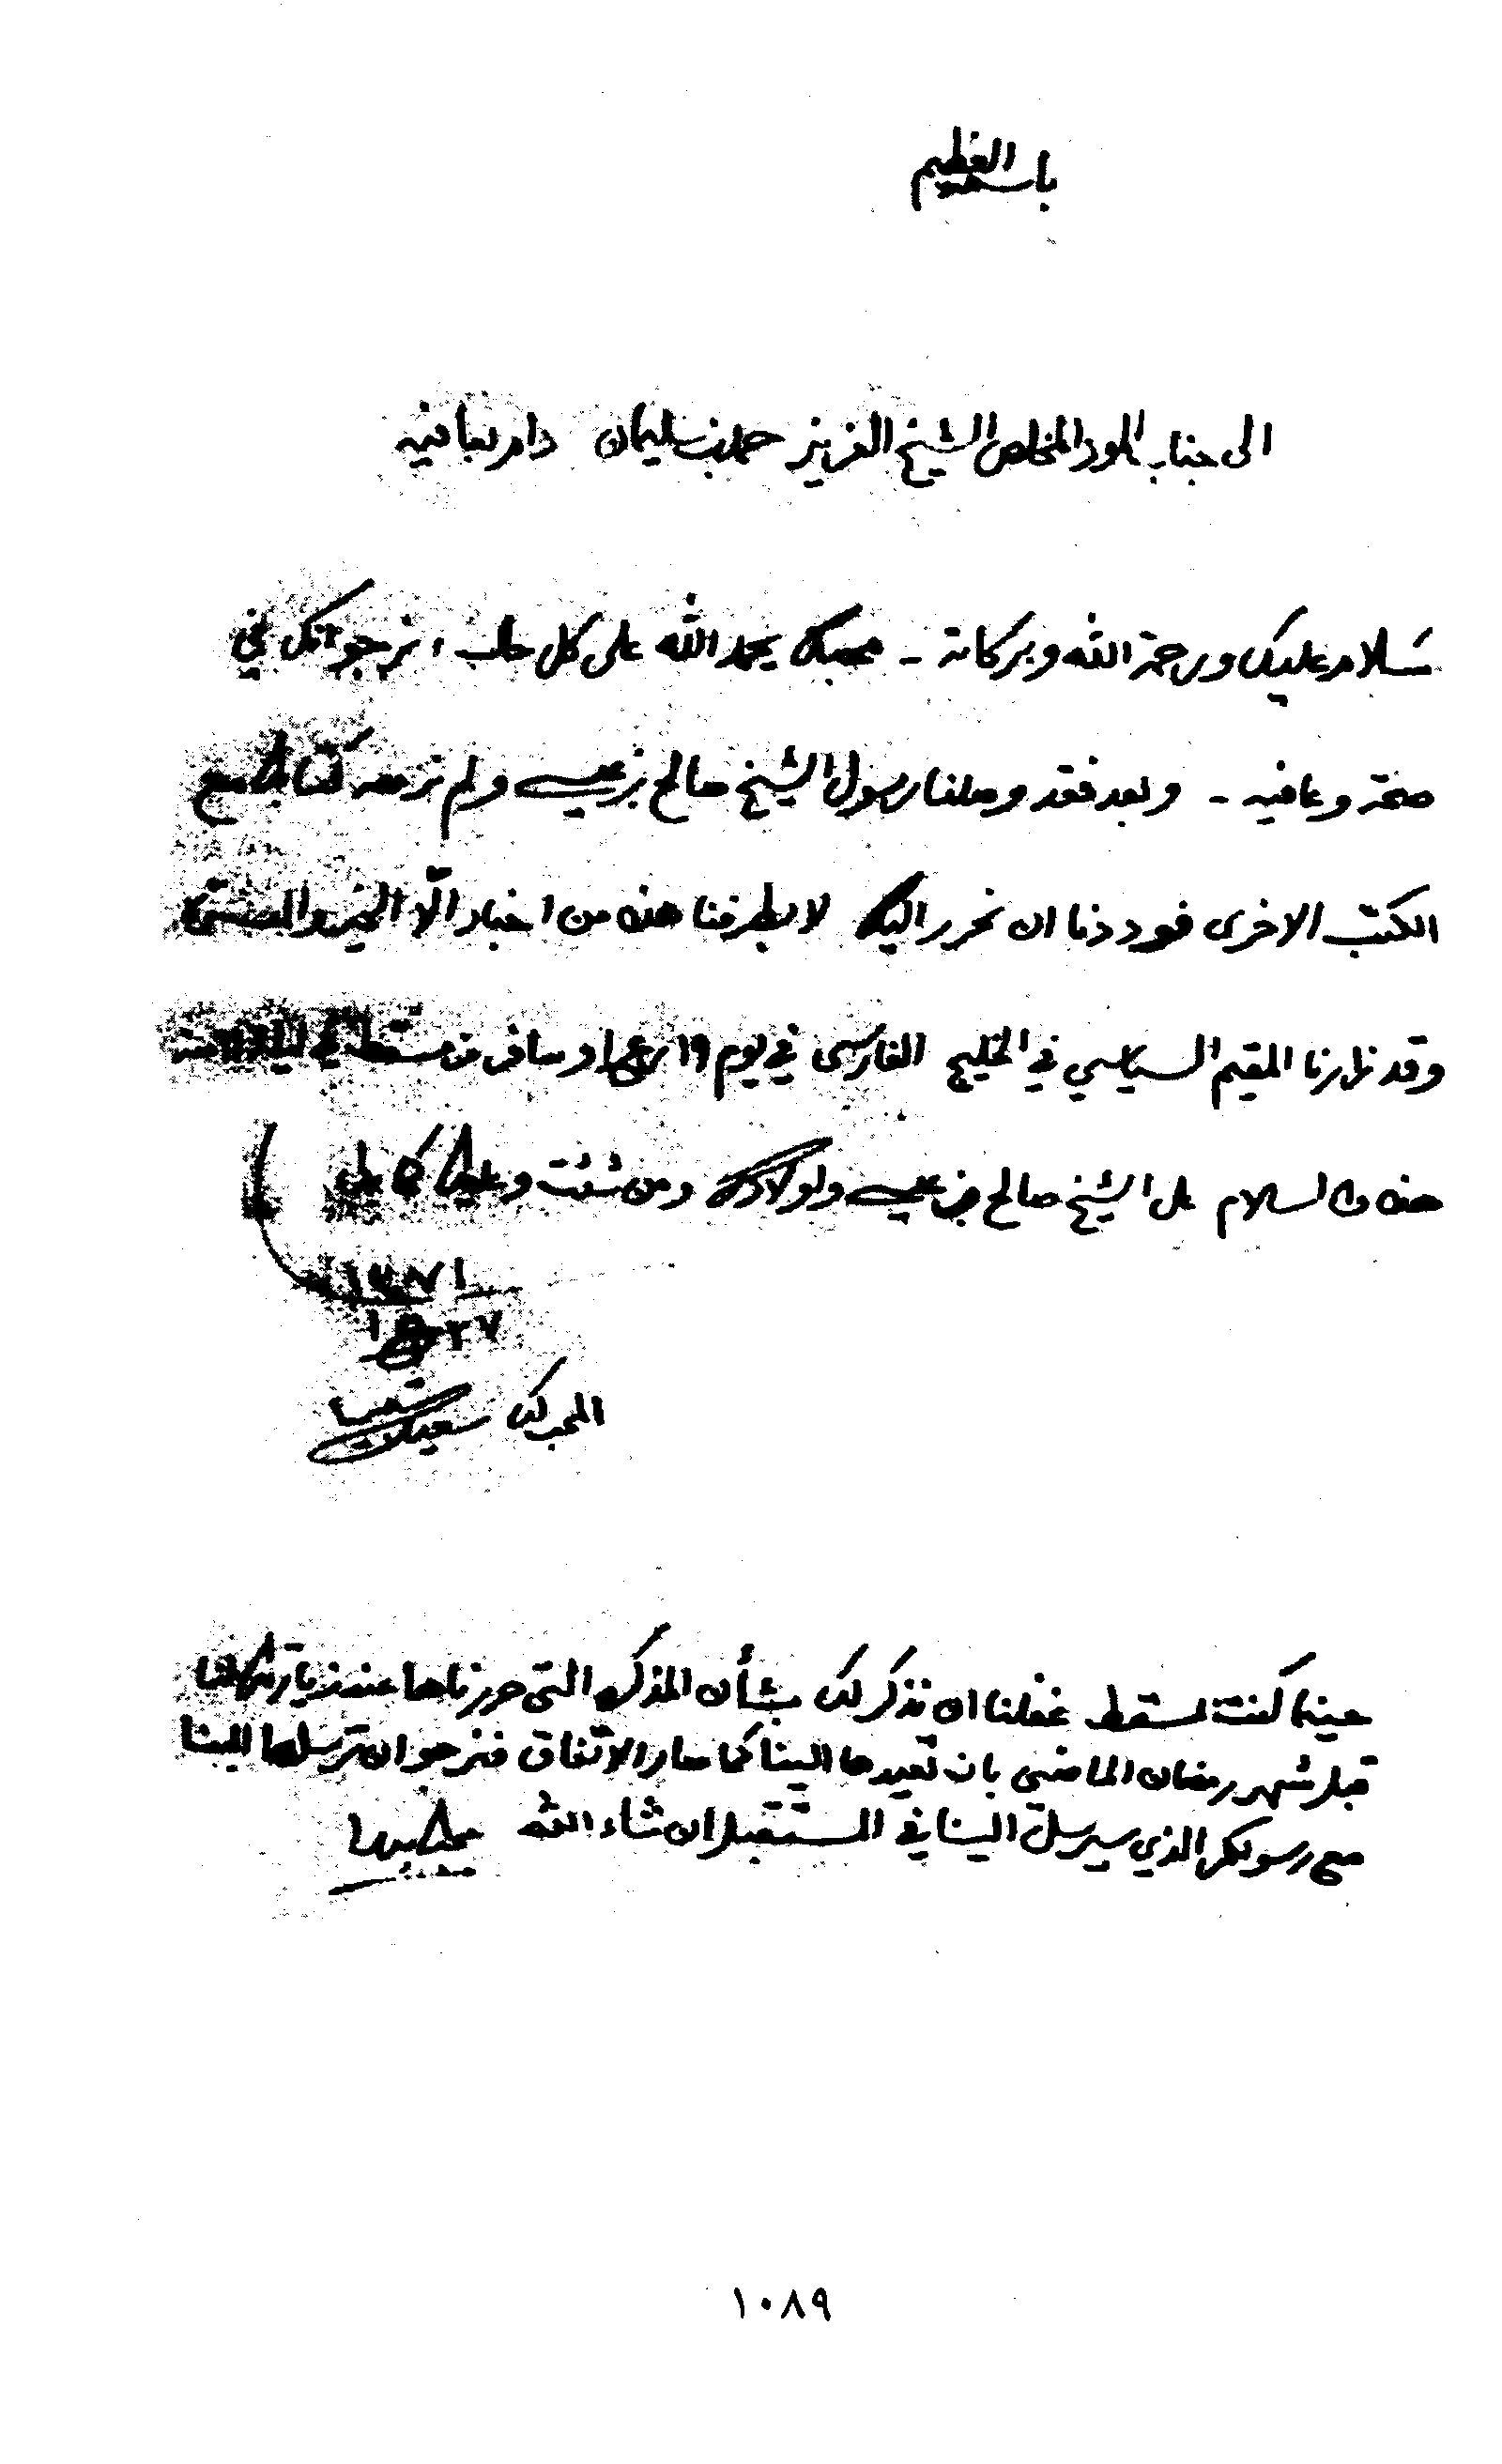 باسمه العظيم
الى جناب المود المخلص الشيخ العزيز حمد بن سليمان دام بعافيه
سلام عليك ورحمة الله وبركاته - محبك بحمد الله على كل حال، نرجو انك في
صحة وعافيه - وبعد فقد وصلنا رسول الشيخ صالح بن عيسى ولم نر معه كتابا مع
الكتب الاخرى فوددنا ان نحرر اليك لا بطرفنا هذه من اخبار الّا الخير والمسرة
وقد زارنا المقيم السياسي في الخليج الفارسي في يوم ١٩ وسافر من مسقط في ليلة
هذه والسلام على الشيخ صالح بن عيسى ولولادك ومن شئت وعليك كما على
١٣٧١
٢٧
المحب لك سعيد بن تيمور
حينما كنت بمسقط غفلنا ان نذكر لك بشأن المذكره التى حررناها عند زيارتك لها
قبل شهر رمضان الماضى بان تعيدها الينا كما صار الاتفاق فنرجو ان ترسلها الينا
مع رسولكم الذي سيرسل الينا في المستقبل ان شاء الله
١٠٨٩